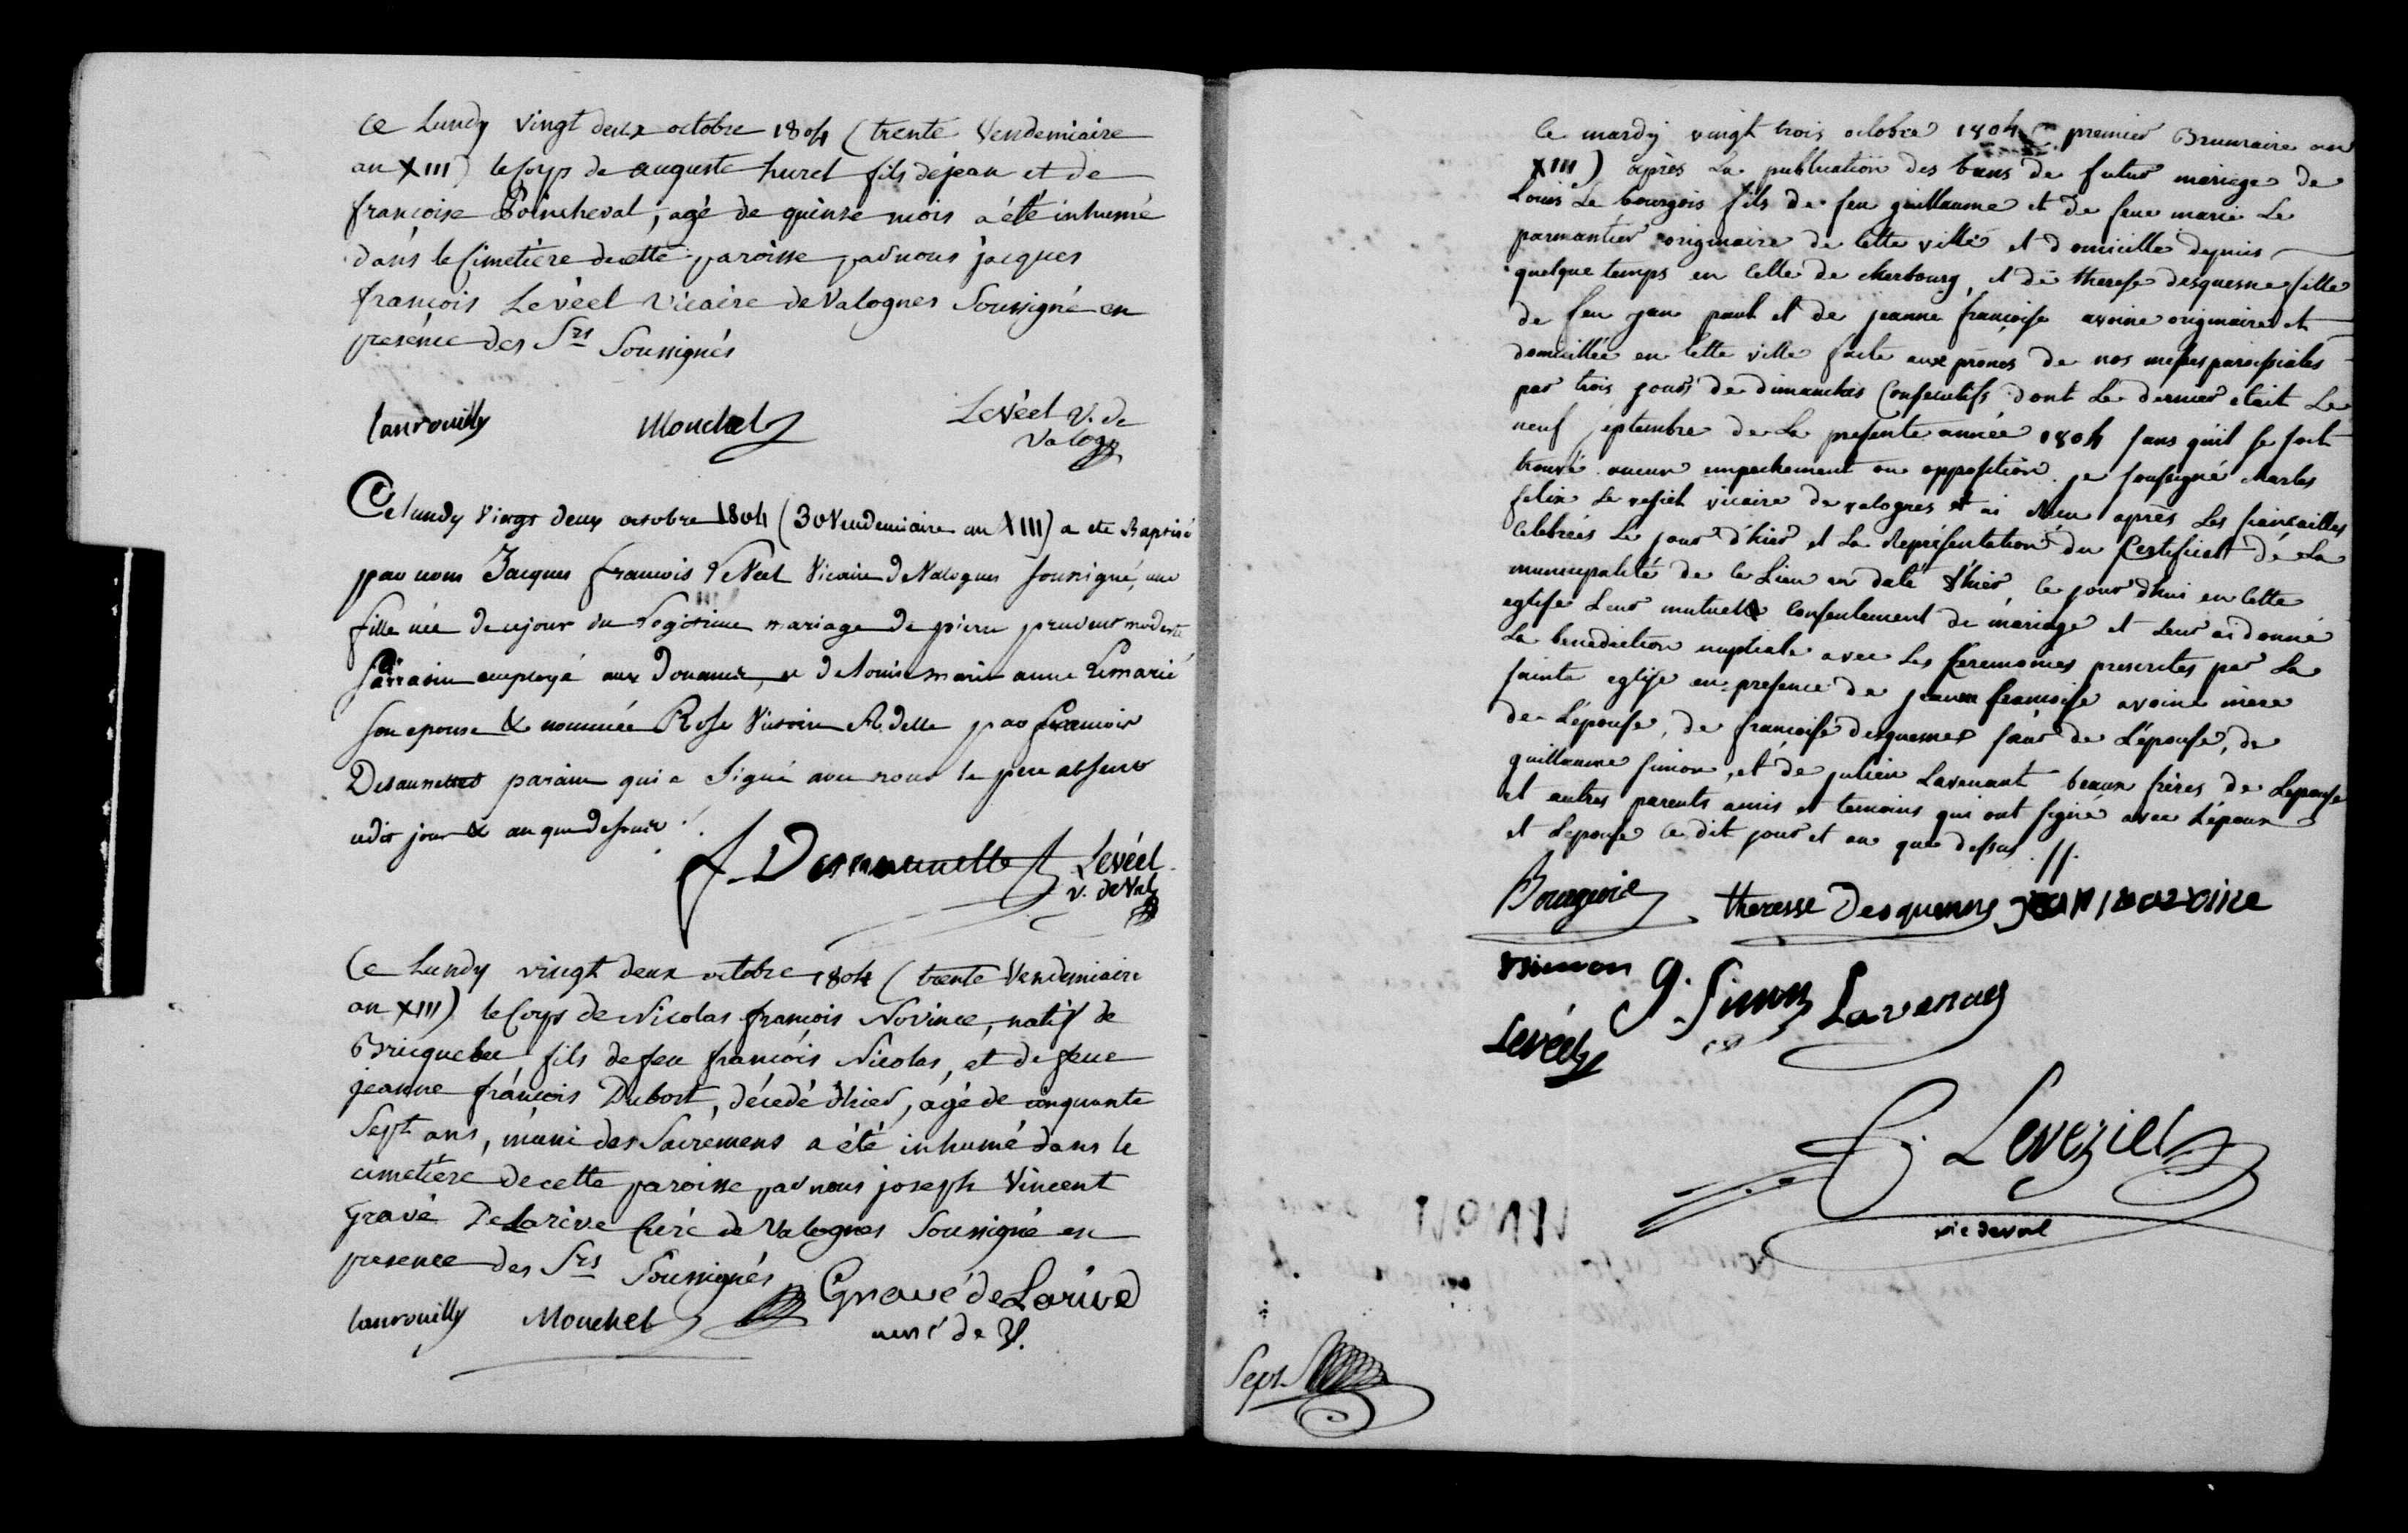 Ce Lundy vingt deux octobre 1804 (trente Vendemiaire
an XIII) le Corps de auguste hurel fils de jean et de
françoise Poincheval, agé de quinze mois a été inhumé
dans le Cimetière de cette paroisse par nous jacques
françois Levéel Vicaire de Valognes Soussigné en
présence des Srs Soussignés
Lanrouilly Mouchel Levéel V. de
Valog
Ce lundy vingt deux octobre 1804 (30 Vendemiaire an XIII) a ete Baptisé
par nous Jacques francois leVéel Vicaire de Valognes soussigné, une
fille née de ce jour du Legitime mariage de pierre prudent modeste
Sarrasin employé aux Douanes, et de Louise marie anne Lemarié
son epouse & nommée Rose Victoire Adelle par francois
parain qui a signé avec nous le pere absent
cedit jour & an que dessus
Levéel
v. de Val
Ce Lundy vingt deux octobre 1804 (trente Vendemiaire
an XIII) le Corps de Nicolas françois Novince, natif de
Bricquebec, fils de feu françois Nicolas, et de feue
jeanne françois Dubost, décédé d'hier, agé de cinquante
Sept ans, muni des Sacremens a été inhumé dans le
cimetière de cette paroisse par nous joseph Vincent
Gravé De Larive Curé de Valognes Soussigné en
présence des Srs Soussignés
Lanrouilly Mouchel Gravé de Larive
curé de V.
Ce mardy vingt trois octobre 1804 (premier Brumaire an
XIII) après La publication des bans de futur mariage de
Louis Le bourgois fils de feu guillaume et de feue marie Le
parmantier originaire de cette ville et domicillé depuis
quelque temps en celle de cherbourg, et de therese desquesne fille
de feu jean paul et de jeanne françoise avoine originaire et
domicillée en cette ville faite aux prônes de nos messes paroissiales
par trois jours de dimanches Consecutifs dont Le dernier etait Le
neuf septembre de La presente année 1804 sans qu'il se soit
trouvé aucun empechement ou opposition. je soussigné charles
felix Le vesiel vicaire de valognes ai reçu après Les fiancailles
celebrées Le jour d'hier et La Représentation du Certificat de La
municipalité de ce Lieu en date d'hier, ce jour d'hui en cette
eglise Leur mutuel Consentement de mariage et Leur ai donné
La benediction nuptiale avec Les Ceremonies prescrites par La
sainte eglise en presence de jeanne francoise avoine mère
de L'épouse, de françoise desquesnes sœur de L'épouse, de
guillaume simon, et de julien Lavenant beaux frères de Lepouse
et autres parents amis et temoins qui ont signé avec L'époux
et Lepouse ce dit jour et an que dessus
Bourgeois theresse Desquennes
simon g. Simon
Levéel
C. Leveziel
vic de val
Sept